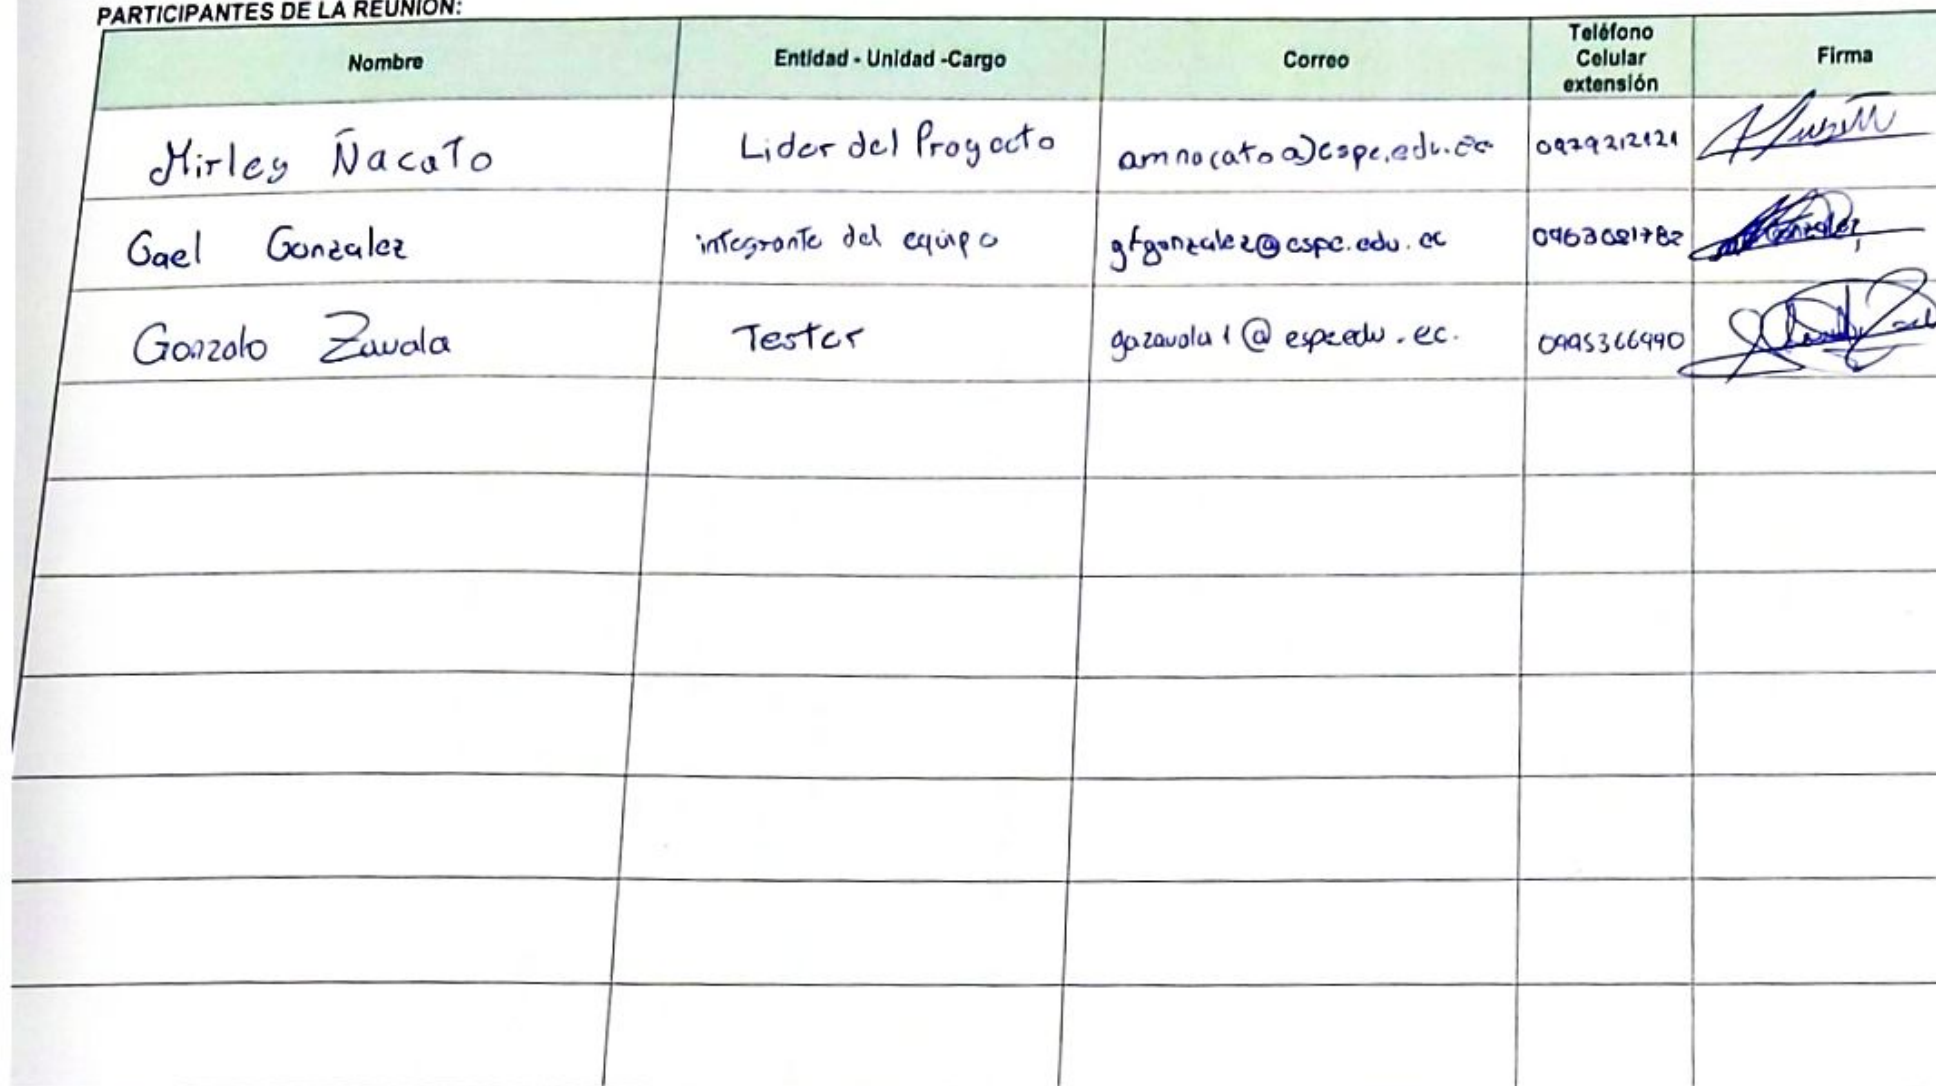 PARTICIPANTES DE LA REUNIÓN:
Nombre Entidad - Unidad -Cargo Correo Teléfono Celular extensión Firma
Mirley Ñacato Lider del Proyecto amnacato@espe.edu.ec 0979212121
Gael Gonzalez integrante del equipo gfgonzalez@espe.edu.ec 0963081782
Gonzalo Zavala Tester gazavala1@espe.edu.ec. 0995366990